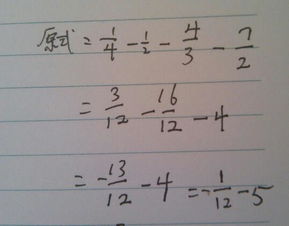 原式 = 1/4 - 1/2 - 4/3 - 7/2
= 3/12 - 16/12 - 4
= -13/12 - 4 = -1/12 - 5